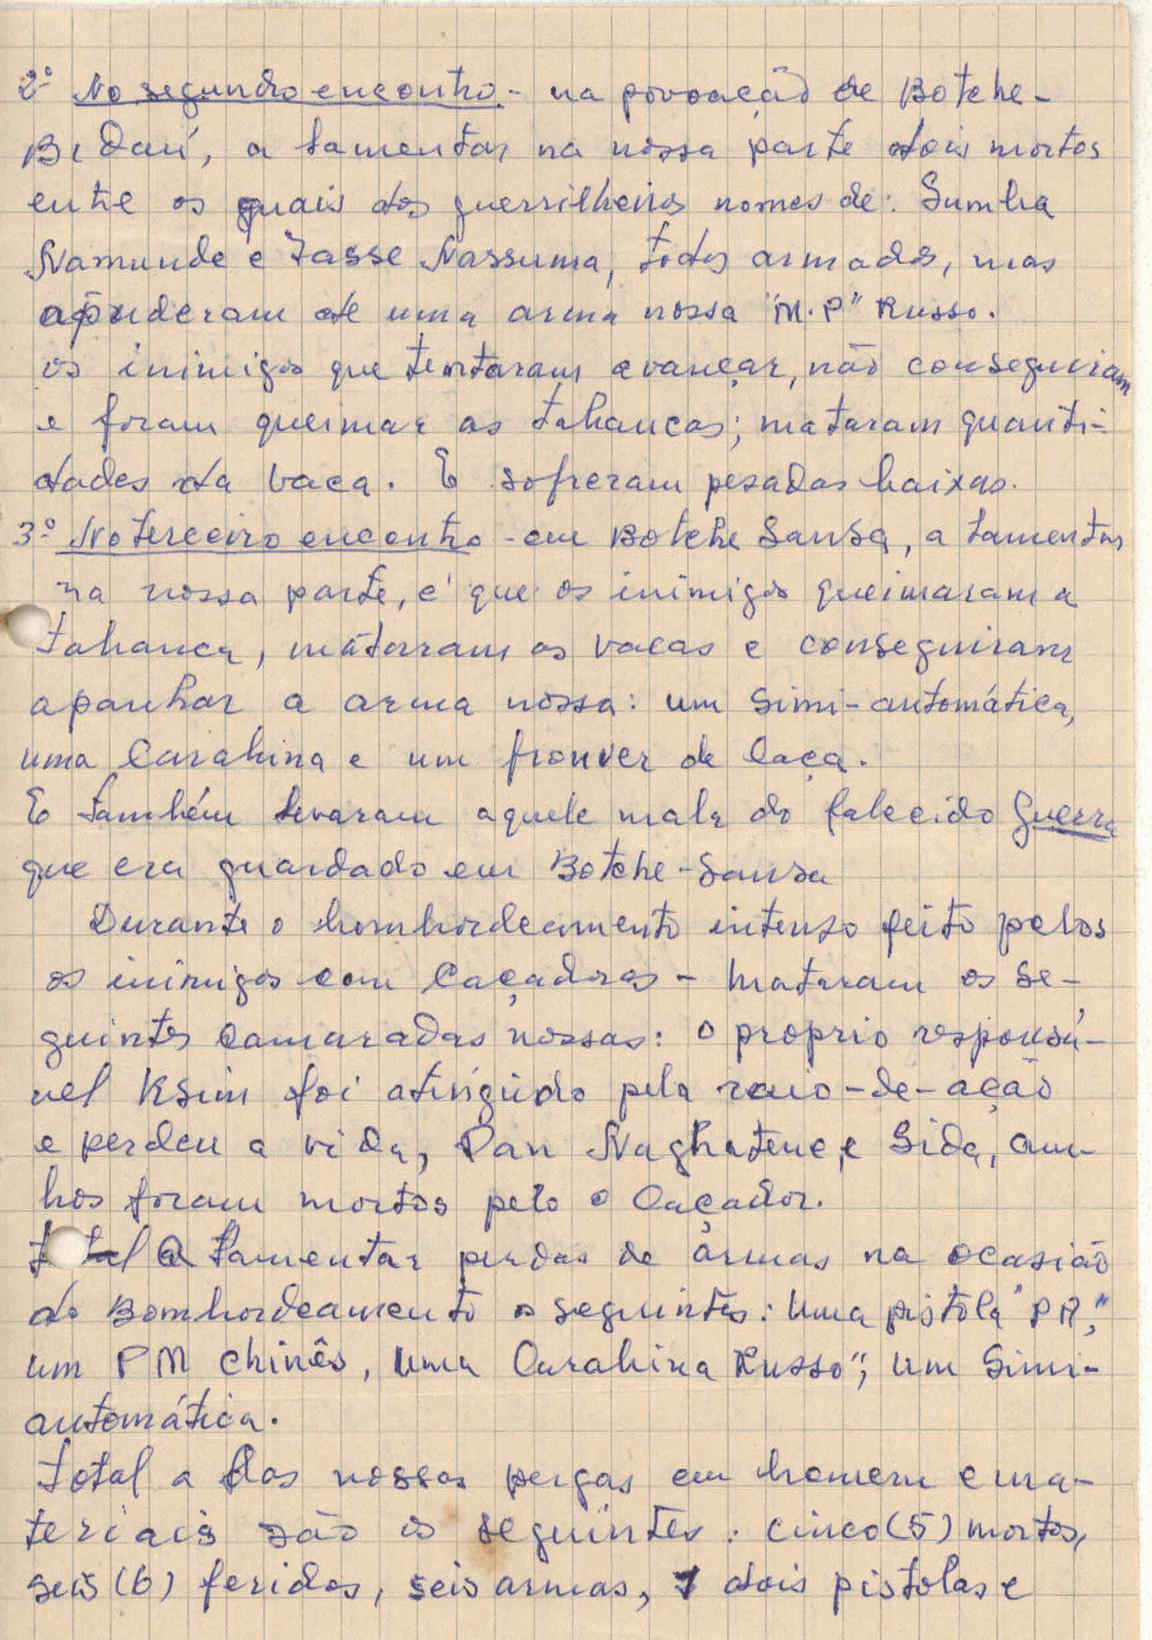 2º No segundo encontro - na povoação de Botche-
Bidaú, a lamentar na nossa parte dois mortos
entre os quais dos guerrilheiros nomes de: Sumba
Namunde e Tasse Nassuma, todos armados, mas
apuderam de uma arma nossa "M.P" Russo.
os inimigos que tentaram avançar, não conseguiram
e foram queimar as tabancas; mataram quanti-
dades da vaca. E sofreram pesadas baixas.
3º No terceiro encontro - em Botche Sansa, a lamentar
na nossa parte, é que os inimigos queimaram a
tabanca, mataram as vacas e conseguiram
apanhar a arma nossa: um simi-automática,
uma Carabina e um frouver de Caça.
E também levaram aquele mala do falecido Guerra
que era guardado em Botche-Sansa
Durante o bombordeamento intenso feito pelos
os inimigos com Caçadros - mataram os se-
guintes Camaradas nossas: o proprio responsá-
vel Ksim foi atingido pela raio-de-ação
e perdeu a vida, Dan Naghatene, e Sida, am-
bos foram mortos pelo o Caçador.
Total a lamentar perdas de armas na ocasião
do Bombordeamento os seguintes: Uma pistola "PM,"
um PM Chinês, uma Carabina Russo", um Simi-
automática.
Total a das nossas pergas em homem e ma-
teriais são os seguintes: cinco (5) mortos,
seis (6) feridos, seis armas, dois pistolas e